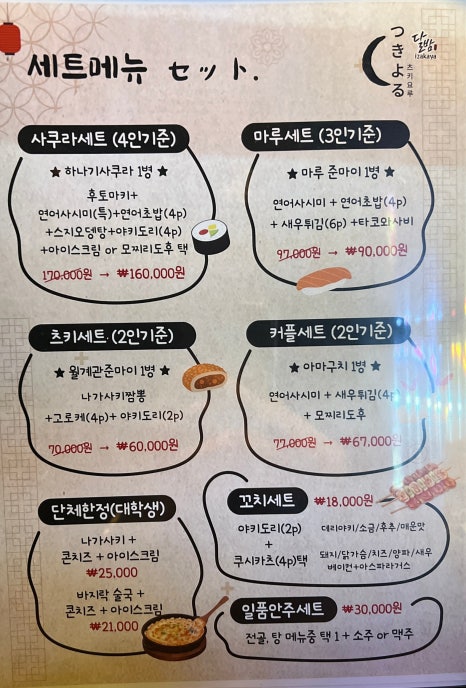 세트메뉴 セット.
つきよる
츠키요루
달밤
izakaya
사쿠라세트 (4인기준)
★ 하나기사쿠라 1병 ★
후토마키+
연어사시미(특)+연어초밥(4p)
+스지오뎅탕+야키도리(4p)
+아이스크림 or 모찌리도후 택
170.000원 → ₩160,000원
마루세트 (3인기준)
★ 마루 준마이 1병 ★
연어사시미 + 연어초밥(4p)
+ 새우튀김(6p) +타코와사비
97.000원 → ₩90,000원
츠키세트 (2인기준)
★ 월계관준마이 1병 ★
나가사키짬뽕
+고로케(4p)+ 야키도리(2p)
70.000원 → ₩60,000원
커플세트 (2인기준)
★ 아마구치 1병 ★
연어사시미 + 새우튀김(4p)
+ 모찌리도후
77.000원 → ₩67,000원
단체한정(대학생)
나가사키 +
콘치즈 + 아이스크림
₩25,000
바지락 술국 +
콘치즈 + 아이스크림
₩21,000
꼬치세트 ₩18,000원
야키도리(2p)
+
쿠시카츠(4p)택
데리야키/소금/후추/매운맛
돼지/닭가슴/치즈/양파/새우
베이컨+아스파라거스
일품안주세트 ₩30,000원
전골, 탕 메뉴중 택 1 + 소주 or 맥주